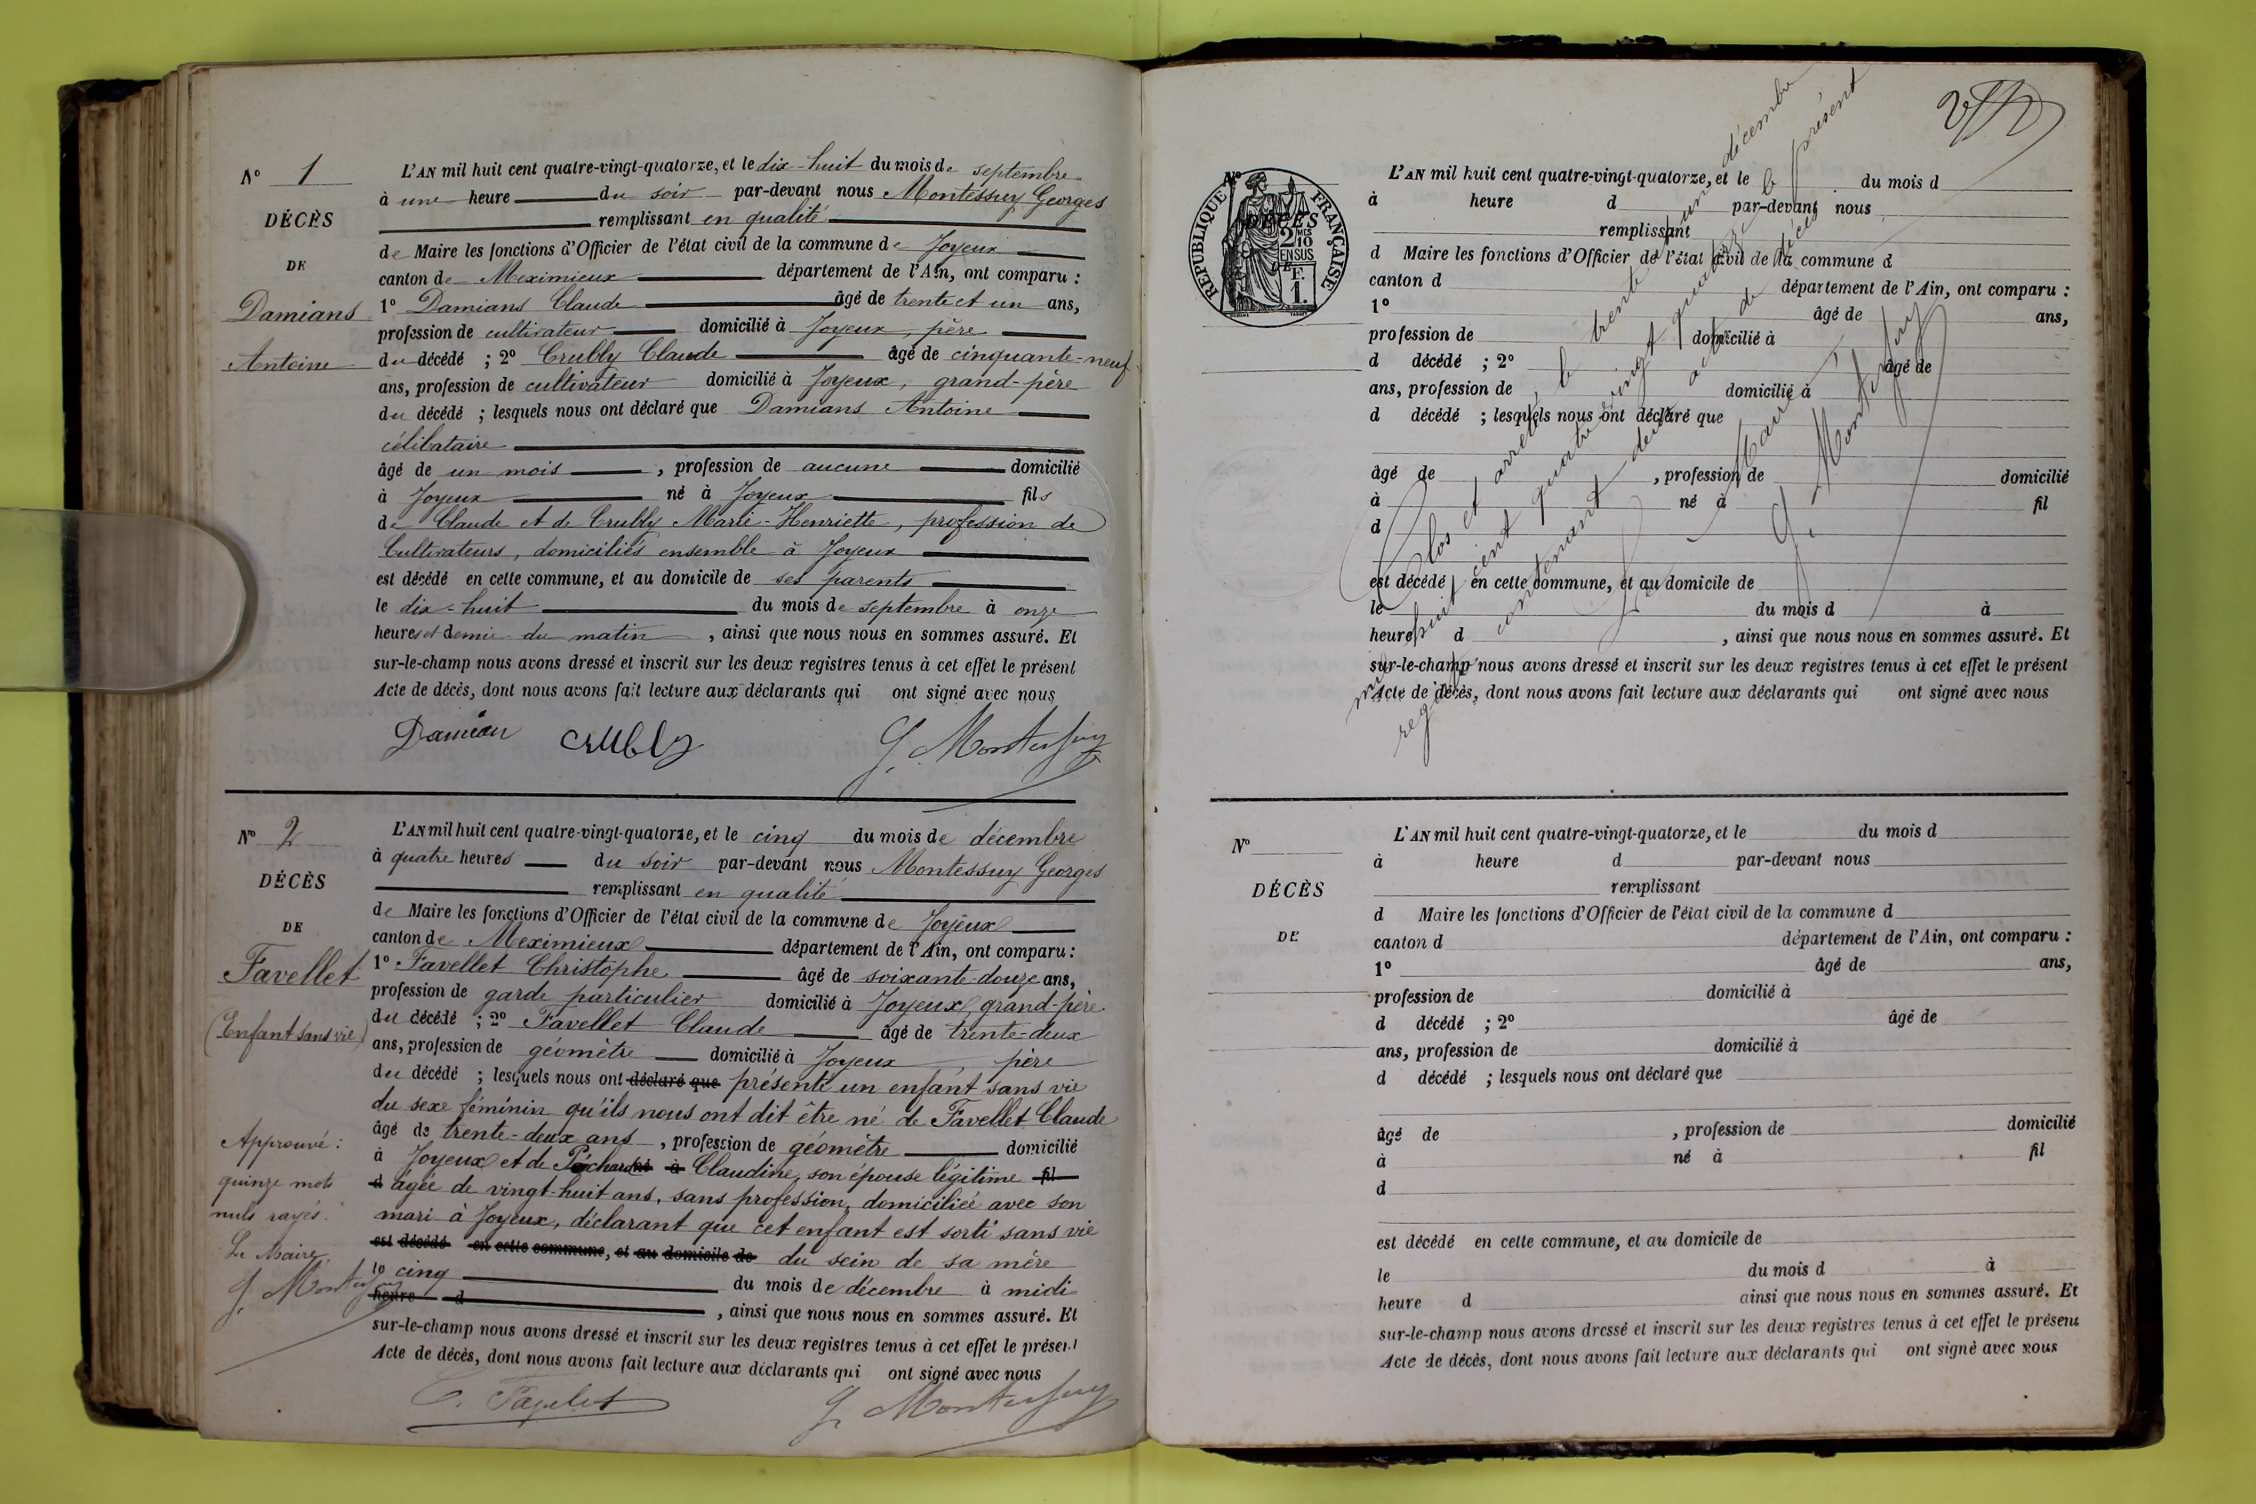 N° 1
DÉCÈS
DE
Damians
Antoine
L'AN mil huit cent quatre-vingt-quatorze, et le dix-huit du mois de septembre
à une heure du soir par-devant nous Montessuy Georges
remplissant en qualité
de Maire les fonctions d'Officier de l'état civil de la commune de Joyeux
canton de Meximieux département de l'Ain, ont comparu :
1° Damians Claude âgé de trente et un ans,
profession de cultivateur domicilié à Joyeux, père
du décédé ; 2° Crubly Claude âgé de cinquante-neuf
ans, profession de cultivateur domicilié à Joyeux, grand-père
du décédé ; lesquels nous ont déclaré que Damians Antoine
célibataire
âgé de un mois , profession de aucune domicilié
à Joyeux né à Joyeux fils
de Claude et de Crubly Marie-Henriette, profession de
Cultivateurs, domiciliés ensemble à Joyeux
est décédé en cette commune, et au domicile de ses parents
le dix-huit du mois de septembre à onze
heures et demie du matin , ainsi que nous nous en sommes assuré. Et
sur-le-champ nous avons dressé et inscrit sur les deux registres tenus à cet effet le présent
Acte de décès, dont nous avons fait lecture aux déclarants qui ont signé avec nous
Damian crubly G. Montessuy
N° 2
DÉCÈS
DE
Favellet
(Enfant sans vie)
Approuvé :
quinze mots
nuls rayés.
Le Maire,
G. Montessuy
L'AN mil huit cent quatre-vingt-quatorze, et le cinq du mois de décembre
à quatre heures du soir par-devant nous Montessuy Georges
remplissant en qualité
de Maire les fonctions d'Officier de l'état civil de la commune de Joyeux
canton de Meximieux département de l'Ain, ont comparu :
1° Favellet Christophe âgé de soixante-douze ans,
profession de garde particulier domicilié à Joyeux, grand-père
du décédé ; 2° Favellet Claude âgé de trente-deux
ans, profession de géomètre domicilié à Joyeux père
du décédé ; lesquels nous ont déclaré que présenté un enfant sans vie
du sexe féminin qu'ils nous ont dit être né de Favellet Claude
âgé de trente-deux ans , profession de géomètre domicilié
à Joyeux et de né à Claudine, son épouse légitime fil
d âgée de vingt-huit ans, sans profession, domiciliée avec son
mari à Joyeux, déclarant que cet enfant est sorti sans vie
est décédé en cette commune, et au domicile de du sein de sa mère
le cinq du mois de décembre à midi
heure d , ainsi que nous nous en sommes assuré. Et
sur-le-champ nous avons dressé et inscrit sur les deux registres tenus à cet effet le présent
Acte de décès, dont nous avons fait lecture aux déclarants qui ont signé avec nous
C. Favellet G. Montessuy
RÉPUBLIQUE FRANÇAISE
2 MES
10
EN SUS
F.
1.
N°
DÉCÈS
L'AN mil huit cent quatre-vingt-quatorze, et le du mois d
à heure d par-devant nous
remplissant
d Maire les fonctions d'Officier de l'état civil de la commune d
canton d département de l'Ain, ont comparu :
1° âgé de ans,
profession de domicilié à
d décédé ; 2° âgé de
ans, profession de domicilié à
d décédé ; lesquels nous ont déclaré que
âgé de , profession de domicilié
à né à fil
d
est décédé en cette commune, et au domicile de
le du mois d à
heure d , ainsi que nous nous en sommes assuré. Et
sur-le-champ nous avons dressé et inscrit sur les deux registres tenus à cet effet le présent
Acte de décès, dont nous avons fait lecture aux déclarants qui ont signé avec nous
Clos et arrêté le trente un décembre
mil huit cent quatre vingt quatorze le présent
registre contenant deux actes de décès
Le Maire
G. Montessuy
N°
DÉCÈS
DE
L'AN mil huit cent quatre-vingt-quatorze, et le du mois d
à heure d par-devant nous
remplissant
d Maire les fonctions d'Officier de l'état civil de la commune d
canton d département de l'Ain, ont comparu :
1° âgé de ans,
profession de domicilié à
d décédé ; 2° âgé de
ans, profession de domicilié à
d décédé ; lesquels nous ont déclaré que
âgé de , profession de domicilié
à né à fil
d
est décédé en cette commune, et au domicile de
le du mois d à
heure d ainsi que nous nous en sommes assuré. Et
sur-le-champ nous avons dressé et inscrit sur les deux registres tenus à cet effet le présent
Acte de décès, dont nous avons fait lecture aux déclarants qui ont signé avec nous